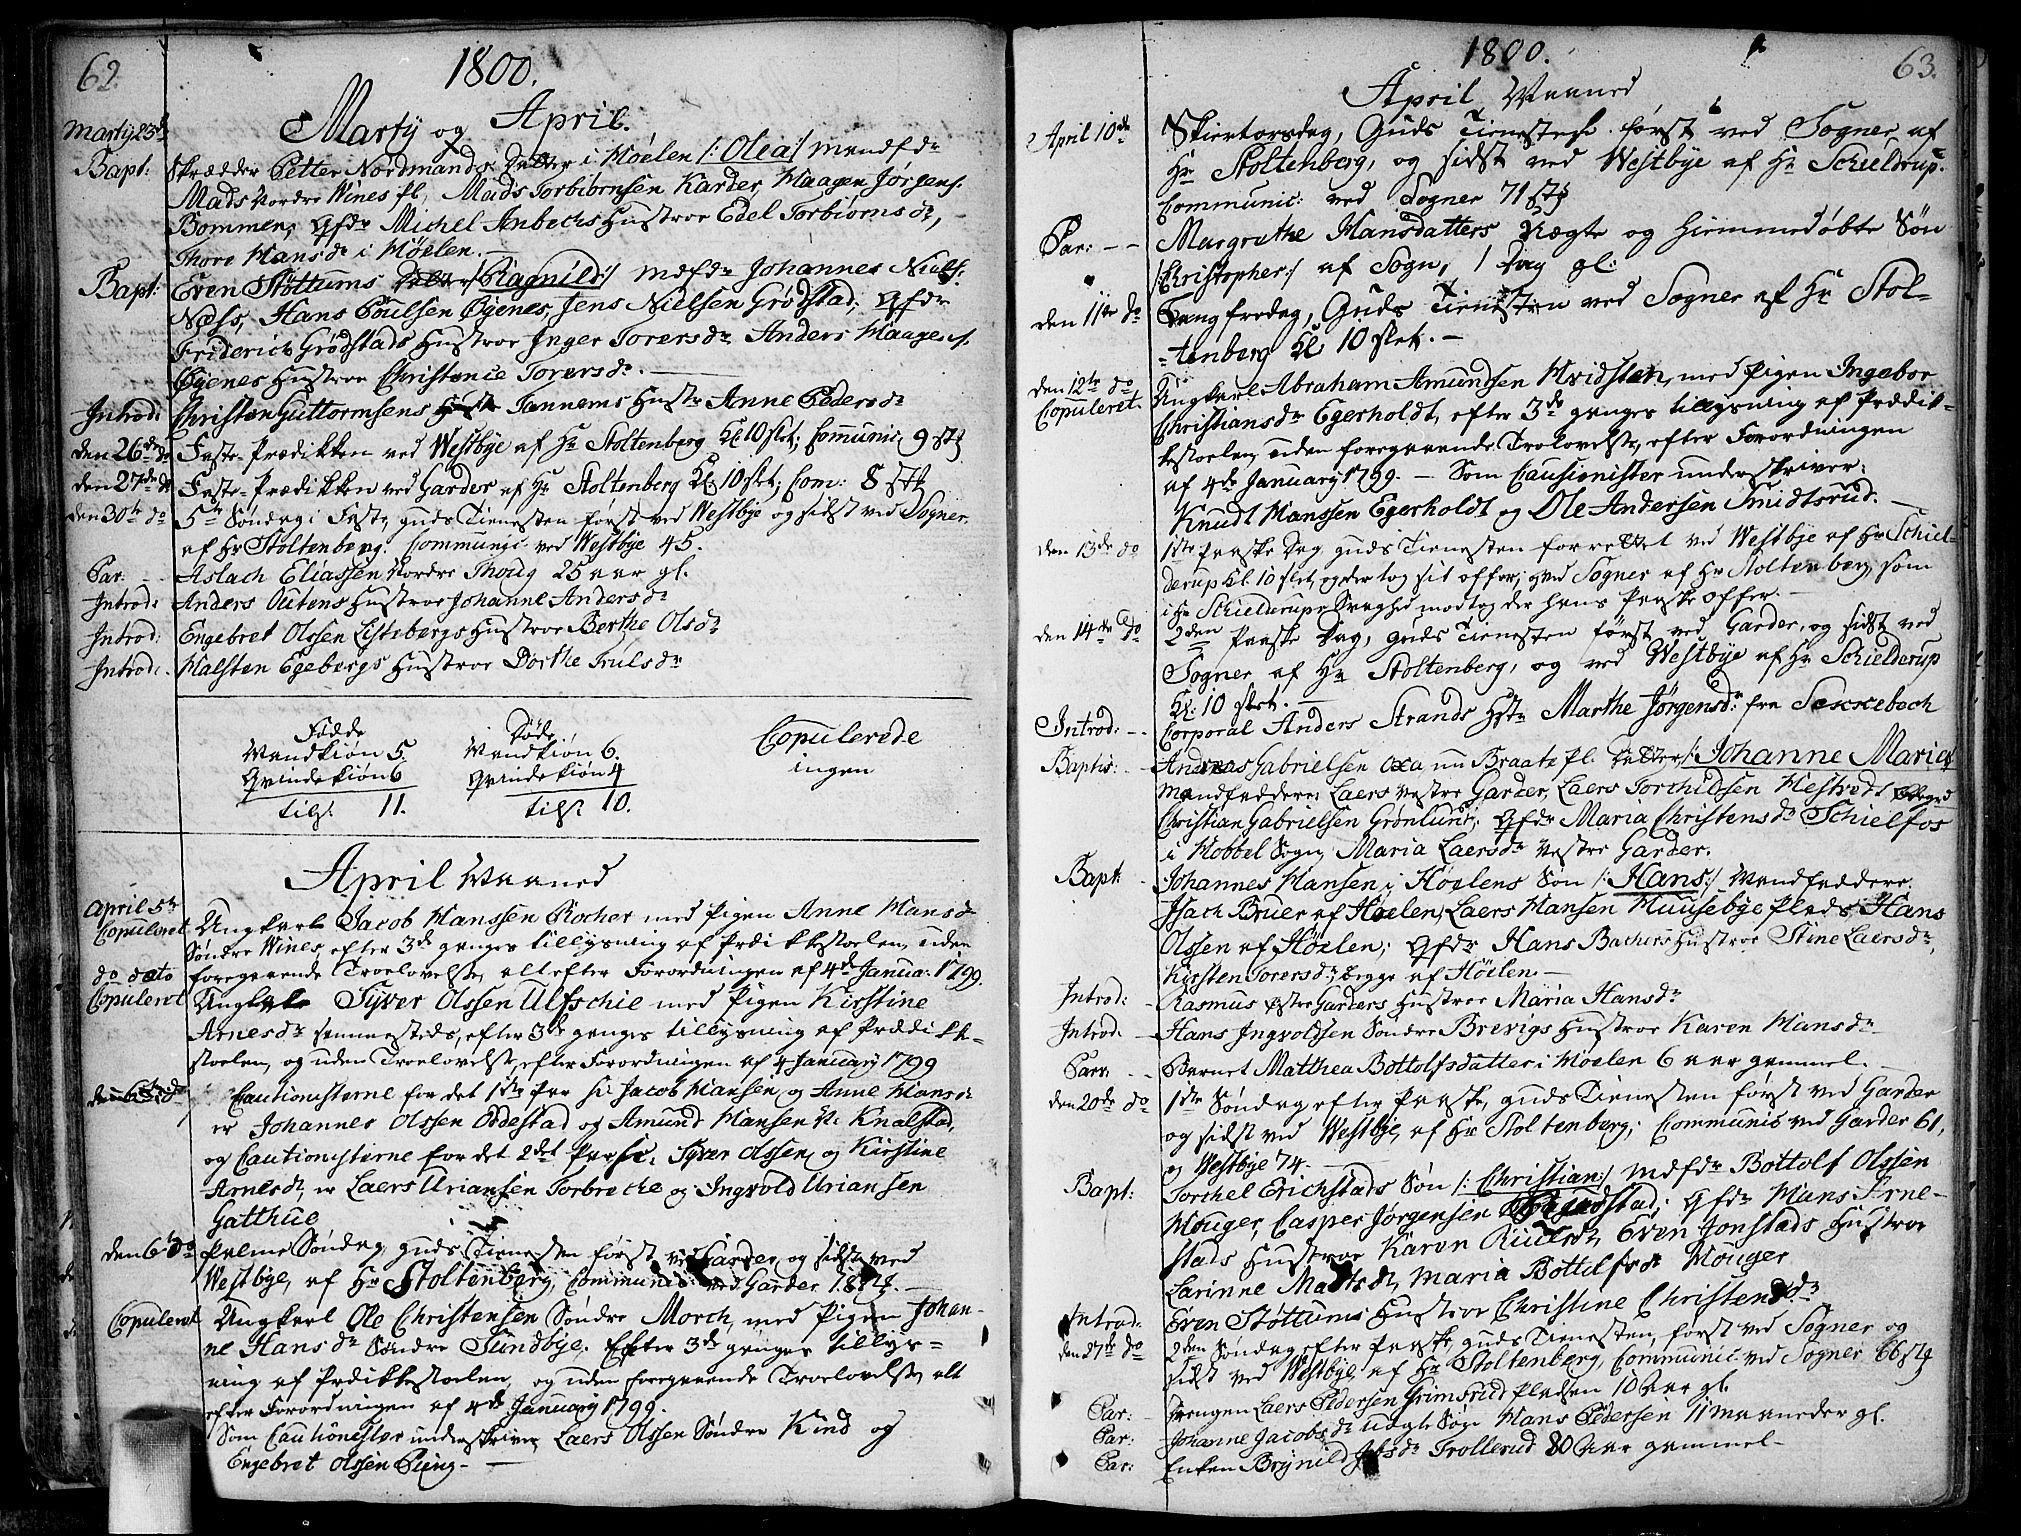 62.
1800.
Marty og April.
Marty 23de
Bapt: Skrædder Petter Nordmands Datter i Høelen /:Olea/ Mandfdr
Mads Nordre Wines pl, Mads Torbiørnsen Karder, Haagen Jørgens.
Bommen, Qfdr Michel Anbechs Hustroe Edel Torbiørnsdr,
Thore Hansdr i Høelen.
Bapt: Even Støttums Datter /:Ragnild:/ Mdfdr Johannes Niels.
Næss, Hans Poulsen Øgenes, Jens Nielsen Grødstad; Qfdr
Friderich Grødstads Hustroe Inger Torersdr Anders Haagens.
Øgenes Hustroe Christence Torersdr.
Introd: Christen Guttormsens Tannems Hustr Anne Pedersdr
den 26de do Faste-Prædikken ved Westbye af Hr Stoltenberg Kl: 10 slet; Communic, 9 stk
den 27de do Faste-Prædikken ved Garder af Hr Stoltenberg Kl: 10 slet; Com: 8 stk
den 30te do 5te Søndag i Faste, Guds Tienesten først ved Westbye og sidst ved Sogner
af Hr Stoltenberg. Communic: ved Westbye 45.
Par: Aslach Eliassen Nordre Thoug 25 aar gl.
Introd: Anders Outens Hustroe Johanne Andersdr
Introd: Engebret Olssen Listebergs Hustroe Berthe Olsdr
Introd: Halsten Egebergs Hustroe Dorthe Trulsdr
Fødde Døde Copulerede
Mandkiøn 5. Mandkiøn 6. ingen
Qvindekiøn 6 Qvindekiøn 4
tils: 11. tils: 10.
April Maaned
April 5te
Copuleret Ungkarl Jacob Hanssen Rocher med Pigen Anne Hansdr
Søndre Wines, efter 3de ganges tillysning af Prædikkestoelen, uden
do dato foregaaende Troelovelse, alt efter Forordningen af 4de Janua: 1799.
Copuleret Ungkarl Syver Olssen Ulfschie med Pigen Kirstine
Arnesdr sammesteds, efter 3de ganges tillysning af Prædikke-
stoelen, og uden Troelovelse, efter Forordningen af 4 January 1799
den 6te do Cautionisterne for det 1ste Par sc: Jacob Hansen og Anne Hansdr
er Johannes Olssen Oddestad og Amund Hansen N: Knalstad,
og Cautionisterne for det 2det Par sc: Syver Olssen, og Kirstine
Arnesdr, er Laers Uriansen Torbrethe og Ingvold Uriansen
Gatthue
den 6te do Palme Søndag, Guds Tienesten først ved Garder, og sidst ved
Westbye, af Hr Stoltenberg, Communic: ved Garder 18 stk.
Copuleret Ungkarl Ole Christensen Søndre Morch, med Pigen Johan-
ne Hansdr Søndre Sundbye. Efter 3de ganges tillys-
ning af Prædikkestoelen, og uden foregaaende Troelovelse, alt
efter Forordningen af 4de January 1799.
Som Cautionister underskriver Laers Olssen Søndre Kind og
Engebret Olssen Pung.
63.
1800.
April Maaned
April 10de Skiertorsdag, Guds Tieneste først ved Sogner af
Hr Stoltenberg, og sidst ved Westbye af Hr Schielderup.
Communic: ved Sogner 71 stk
Par: Margrethe Hansdatters Uægte og hiemmedøbte Søn
/:Christopher:/ af Sogn, 1 Dag gl:
den 11te do Langfredag, Guds Tienesten ved Sogner af Hr Stol-
-tenberg Kl: 10 slet.
den 12te do Ungkarl Abraham Amundsen Hvidsten, med Pigen Ingebor
Copuleret Christiansdr Egerholdt, efter 3de ganges tillysning af Prædik-
kestoelen, uden foregaaende Troelovelse, efter Forordningen
af 4de January 1799. Som Causionister underskriver:
Knudt Hanssen Egerholdt og Ole Andersen Smidtsrud.
den 13de do 1ste Paaske Dag, Guds Tienesten forrettet ved Westbye af Hr Schiel-
derup Kl: 10 slet, og der tog sit offer; ved Sogner af Hr Stoltenberg, som
i Hr Schielderups Svaghed modtog der hans Paaske offer.
den 14de do 2den Paaske Dag, Guds Tienesten først ved Garder, og sidst ved
Sogner af Hr Stoltenberg, og ved Westbye af Hr Schielderup
Kl: 10 slet.
Introd: Corporal Anders Strands Hstr Marthe Jørgensdr fra
Baptis: Andreas Gabrielsen Oxa, nu Braate pl. Datter /:Johanne Maria
Mandfaddere: Laers Vestre Garder, Laers Torchildsen Hestved
Christian Gabrielsen Grønlund; Qfdr Maria Christensdr Schielfos
i Hobbel Sogn, Maria Laersdr Vestre Garder.
Bapt: Johannes Hansen i Høelens Søn /:Hans:/ Mandfaddere:
Isach Bruer af Høelen, Laers Hansen Muusebye pladsn Hans
Olssen af Høelen; Qfdr Hans Bachers Hustroe Stine Laersdr,
Kirsten Torersdr, begge af Høelen.
Introd: Rasmus Østre Garders Hustroe Maria Hansdr
Introd: Hans Ingvoldsen Søndre Brevigs Hustroe Karen Hansdr
Par: Barnet Matthea Bottolfsdatter i Høelen 6 aar gammel.
den 20de do 1ste Søndag efter Paaske, Guds Tienesten først ved Garder
og sidst ved Westbye, af Hr Stoltenberg; Communic ved Garder 61,
og Westbye 74.
Bapt: Torchel Erichstads Søn /:Christian:/ Mdfdr Bottolf Olssen
Houger, Casper Jørgensen ; Qfdr Hans Arne-
stads Hustroe Karen Riulsdr, Even Jonstads Hustroe
Larinne Madsdr, Maria Bottelfsdr Houger
Introd: Even Støttums Hustroe Christine Christensdr
den 27de do 2den Søndag efter Paaske, Guds Tienesten, først ved Sogner og
sidst ved Westbye, af Hr Stoltenberg, Communic: ved Sogner 66 stk
Par: Drengen Laers Pedersen Grimsrud pladsen 10 Aar gl.
Par: Johanne Jacobsdr uægte Søn Hans Pedersen 11 Maaneder gl.
Par: Enken Brynild Trollerud 80 Aar gammel